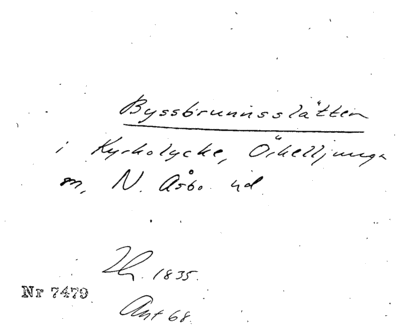 Byssbrunnsslätten
i Kyrkolycke, Örkelljunga
sn, N. Åsbo hd
Lh. 1835.
Nr 7479
Ant 68